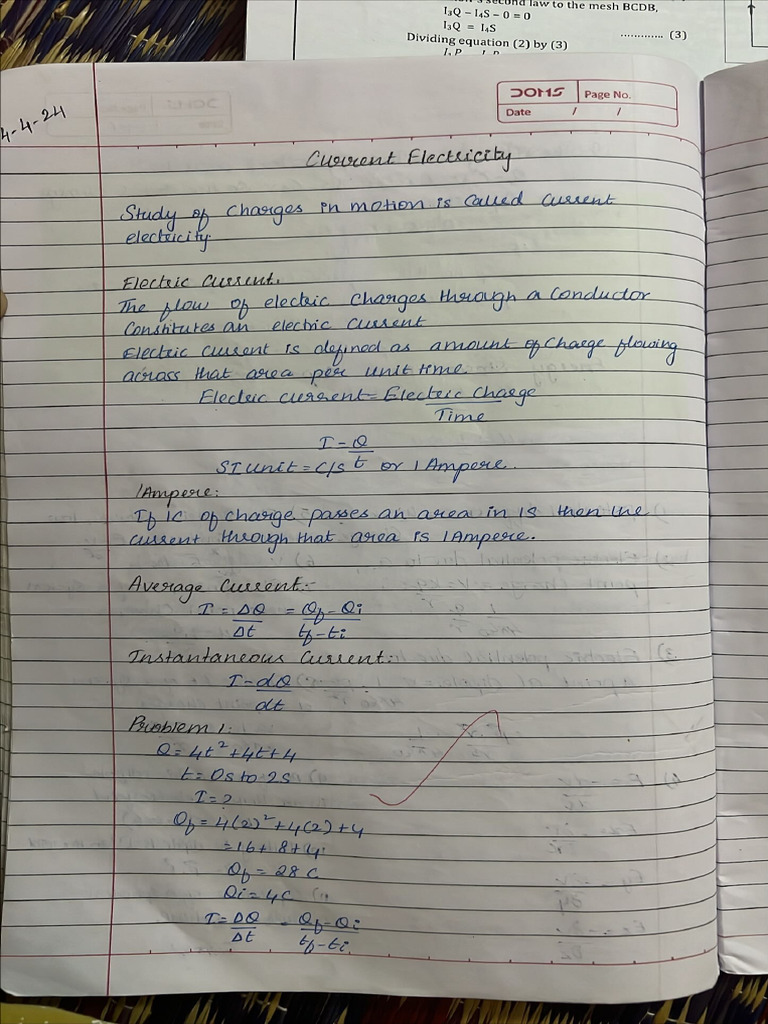 second law to the mesh BCDB,
I₃Q – I₄S – 0 = 0
I₃Q = I₄S
............. (3)
Dividing equation (2) by (3)
4-4-24
DOMS Page No.
Date / /
Current Electricity
Study of charges in motion is called current
electricity
Electric Current.
The flow of electric charges through a conductor
constitutes an electric current
Electric current is defined as amount of charge flowing
across that area per unit time.
Electric current = Electric Charge
Time
I = Q
SI unit = C/S t or 1 Ampere.
1Ampere:
If 1C of charge passes an area in 1S then the
current through that area is 1Ampere.
Average Current:-
I = ΔQ = Qf - Qi
Δt tf - ti
Instantaneous Current:
I = dQ
dt
Problem 1:
Q = 4t² + 4t + 4
t = 0s to 2s
I = ?
Qf = 4(2)² + 4(2) + 4
= 16 + 8 + 4
Qf = 28 C
Qi = 4C
I = ΔQ = Qf - Qi
Δt tf - ti